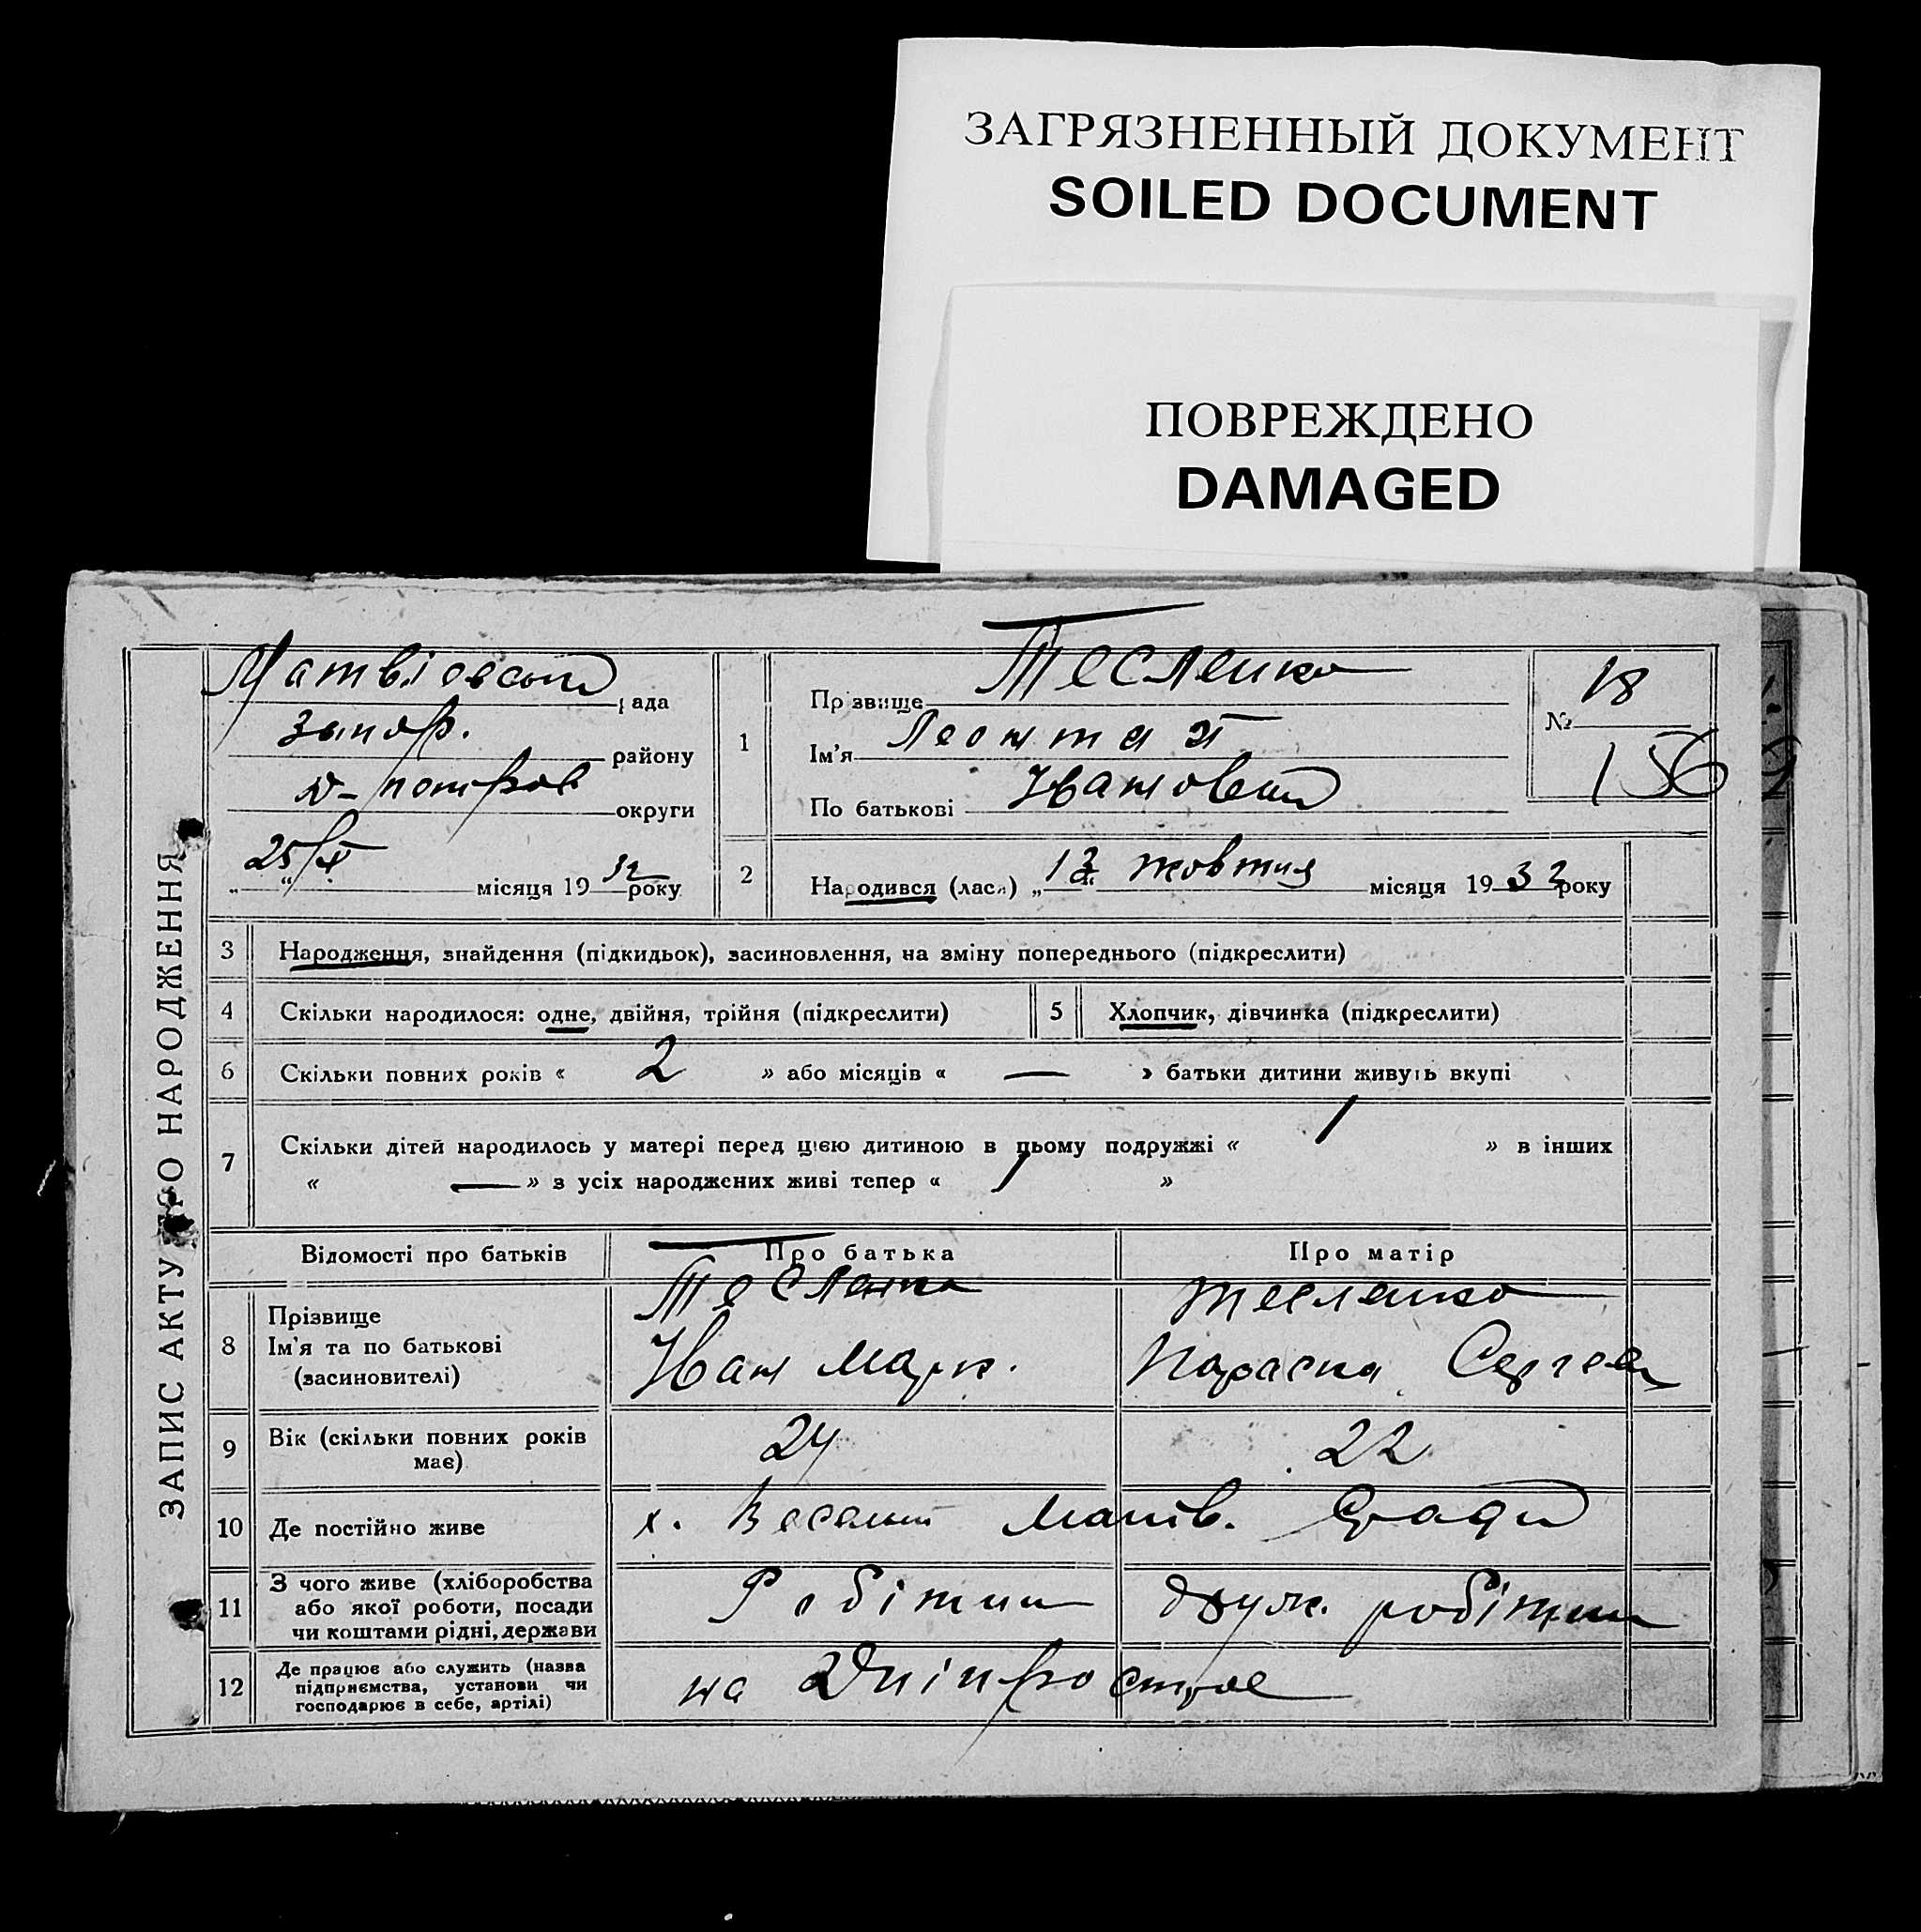 ЗАГРЯЗНЕННЫЙ ДОКУМЕНТ
SOILED DOCUMENT
ПОВРЕЖДЕНО
DAMAGED
ЗАПИС АКТУ ПРО НАРОДЖЕННЯ
рада
Запор. району
Д-петров округи
25/X місяця 1932 року
1
Прізвище Тесленко
Ім'я
По батькові Іванович
№ 18
156
2
Народився (лася) „13“ жовтня місяця 1932 року
3 Народження, знайдення (підкидьок), засиновлення, на зміну попереднього (підкреслити)
4 Скільки народилося: одне, двійня, трійня (підкреслити)
5 Хлопчик, дівчинка (підкреслити)
6 Скільки повних років « 2 » або місяців « — » батьки дитини живуть вкупі
7 Скільки дітей народилось у матері перед цією дитиною в цьому подружжі « 1 » в інших
« — » з усіх народжених живі тепер « 1 »
Відомості про батьків Про батька Про матір
8 Прізвище
Ім'я та по батькові
(засиновителі)
Тесленко
Іван Марк.
Тесленко
Параска Сергеев
9 Вік (скільки повних років
має)
24 22
10 Де постійно живе х. Веселий Матв. С/ради
11 З чого живе (хліборобства
або якої роботи, посади
чи коштами рідні, держави
Робітник друж. робітника
12 Де працює або служить (назва
підприємства, установи чи
господарює в себе, артілі)
на Дніпрострое